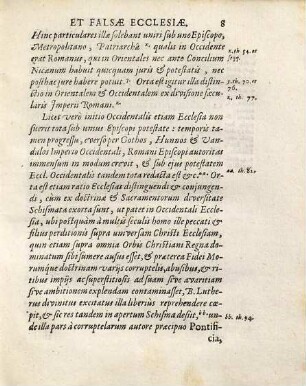 ET FALSÆ ECCLESIÆ. 8
Hinc particulares illæ solebant uniri sub uno Episcopo,
Metropolitano, Patriarchâ x. qualis in Occidente
erat Romanus, qui in Orientales nec ante Concilium
Nicænum habuit unquam juris & potestatis, nec
posthac jure habere potuit. y. Orta est igitur illa distin-
ctio in Orientalem & Occidentalem ex divisione sæcu-
laris Imperii Romani. z.
Licet verò initio Occidentalis etiam Ecclesia non
fuerit tota sub unius Episcopi potestate: temporis ta-
men progressu, everso per Gothos, Hunnos & Van-
dalos Imperio Occidentali, Romani Episcopi autoritas
immensum in modum crevit, & sub ejus potestatem
Eccl. Occidentalis tandem tota redacta est &c. aa. Or-
ta est etiam ratio Ecclesias distinguendi & conjungen-
di, cum ex doctrinæ & Sacramentorum diversitate
Schismata exorta sunt, ut patet in Occidentali Eccle-
sia, ubi postquàm à multis seculis homo ille peccati &
filius perditionis supra universam Christi Ecclesiam,
quin etiam supra omnia Orbis Christiani Regna do-
minatum sibi sumere ausus esset, & præterea Fidei Mo-
rumque doctrinam variis corruptelis, abusibus, & er-
ribus impiis ac superstitiosis ad suam sive avaritiam
sive ambitionem explendam contaminasset, B. Luthe-
rus divinitus excitatus illa liberius reprehendere cœ-
pit, & sic res tandem in apertum Schisma desiit, bb. un-
de illa pars à corruptelarum autore præcipuo Pontifi-
cia,
x. th. 54. et
y. th. 70.
76.
z. th. 77.
aa. th. 81.
bb. th. 94.